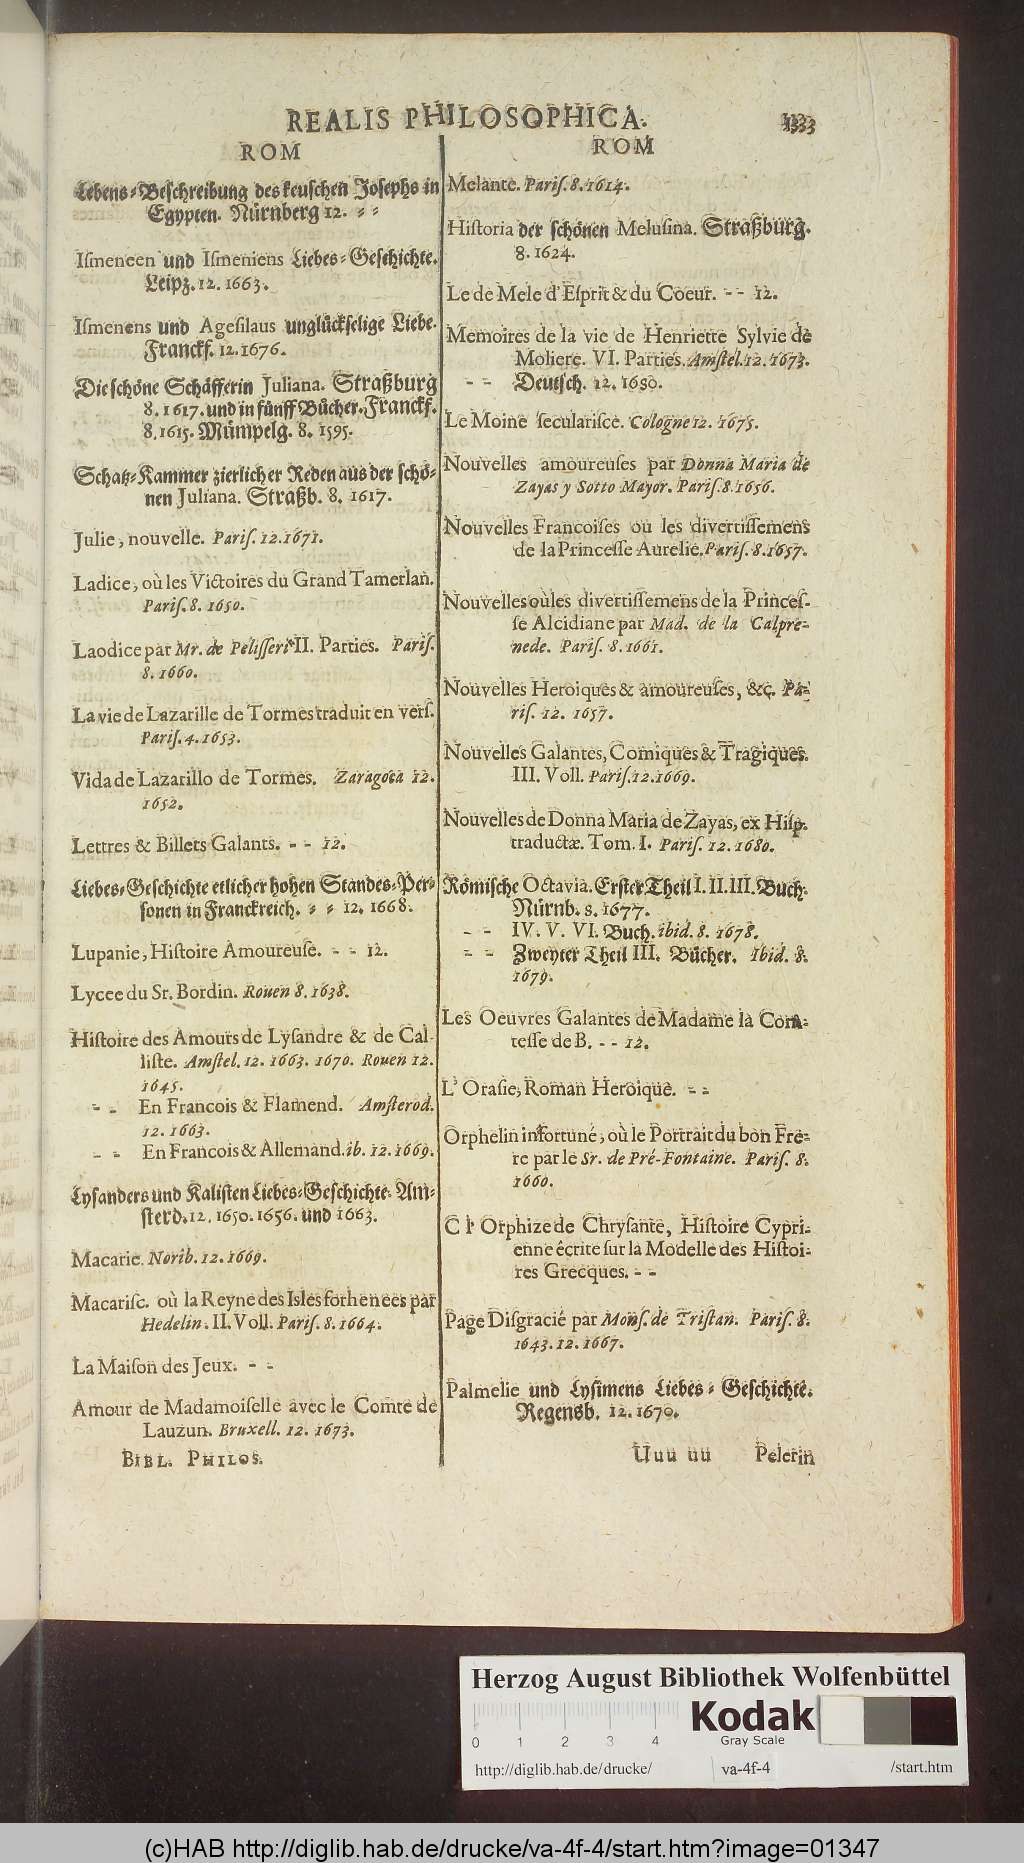 REALIS PHILOSOPHICA. 1333
ROM
Lebens-Beschreibung des keuschen Josephs in
Egypten. Nürnberg 12. - -
Iſmeneen und Iſmeniens Liebes-Geschichte.
Leipz. 12. 1663.
Iſmenens und Ageſilaus unglückselige Liebe.
Franckf. 12. 1676.
Die schöne Schäfferin Juliana. Straßburg
8. 1617. und in fünff Bücher. Franckf.
8. 1615. Mümpelg. 8. 1595.
Schatz-Kammer zierlicher Reden aus der schö-
nen Juliana. Straßb. 8. 1617.
Julie, nouvelle. Pariſ. 12. 1671.
Ladice, où les Victoires du Grand Tamerlan.
Pariſ. 8. 1650.
Laodice par Mr. de Péliſſeri II. Parties. Pariſ.
8. 1660.
La vie de Lazarille de Tormes traduit en verſ.
Pariſ. 4. 1653.
Vida de Lazarillo de Tormes. Zaragoça 12.
1652.
Lettres & Billets Galants. - - 12.
Liebes-Geschichte etlicher hohen Standes-Per-
sonen in Franckreich. - - 12. 1668.
Lupanie, Hiſtoire Amoureuſe. - - 12.
Lycee du Sr. Bordin. Rouen 8. 1638.
Hiſtoire des Amours de Lyſandre & de Cal-
liſte. Amſtel. 12. 1663. 1670. Rouen 12.
1645.
- - En Francois & Flamend. Amſterod.
12. 1663.
- - En Francois & Allemand. ib. 12. 1669.
Lysanders und Kalisten Liebes-Geschichte. Am-
sterd. 12. 1650. 1656. und 1663.
Macarie. Norib. 12. 1669.
Macariſe. où la Reyne des Isles forhenees par
Hedelin. II. Voll. Pariſ. 8. 1664.
La Maiſon des Jeux. - -
Amour de Madamoiſelle avec le Comte de
Lauzun. Bruxell. 12. 1673.
BIBL. PHILOS.
ROM
Melante. Pariſ. 8. 1614.
Hiſtoria der schönen Meluſina. Straßburg.
8. 1624.
Le de Mele d'Eſprit & du Coeur. - - 12.
Memoires de la vie de Henriette Sylvie de
Moliere. VI. Parties. Amſtel. 12. 1673.
- - Deutsch. 12. 1680.
Le Moine ſeculariſce. Cologne 12. 1675.
Nouvelles amoureuſes par Donna Maria de
Zayas y Sotto Mayor. Pariſ. 8. 1656.
Nouvelles Francoiſes ou les divertiſſemens
de la Princeſſe Aurelie. Pariſ. 8. 1657.
Nouvelles où les divertiſſemens de la Princeſ-
ſe Alcidiane par Mad. de la Calpre-
nede. Pariſ. 8. 1661.
Nouvelles Heroiques & amoureuſes, &c. Pa-
riſ. 12. 1657.
Nouvelles Galantes, Comiques & Tragiques.
III. Voll. Pariſ. 12. 1669.
Nouvelles de Donna Maria de Zayas, ex Hiſp.
traductæ. Tom. I. Pariſ. 12. 1680.
Römische Octavia. Erster Theil I. II. III. Buch.
Nürnb. 8. 1677.
- - IV. V. VI. Buch. ibid. 8. 1678.
- - Zweyter Theil III. Bücher. Ibid. 8.
1679.
Les Oeuvres Galantes de Madame la Com-
teſſe de B. - - 12.
L'Oraſie, Roman Heroique. - -
Orphelin infortuné, où le Portrait du bon Fre-
re par le Sr. de Pré-Fontaine. Pariſ. 8.
1660.
C l' Orphize de Chryſante, Hiſtoire Cypri-
enne écrite ſur la Modelle des Hiſtoi-
res Grecques. - -
Page Diſgracié par Monſ. de Triſtan. Pariſ. 8.
1643. 12. 1667.
Palmelie und Lysimens Liebes-Geschichte.
Regensb. 12. 1670.
Uuu uu Pelerin
Herzog August Bibliothek Wolfenbüttel
0 1 2 3 4
Kodak
Gray Scale
http://diglib.hab.de/drucke/ va-4f-4 /start.htm
(c)HAB http://diglib.hab.de/drucke/va-4f-4/start.htm?image=01347